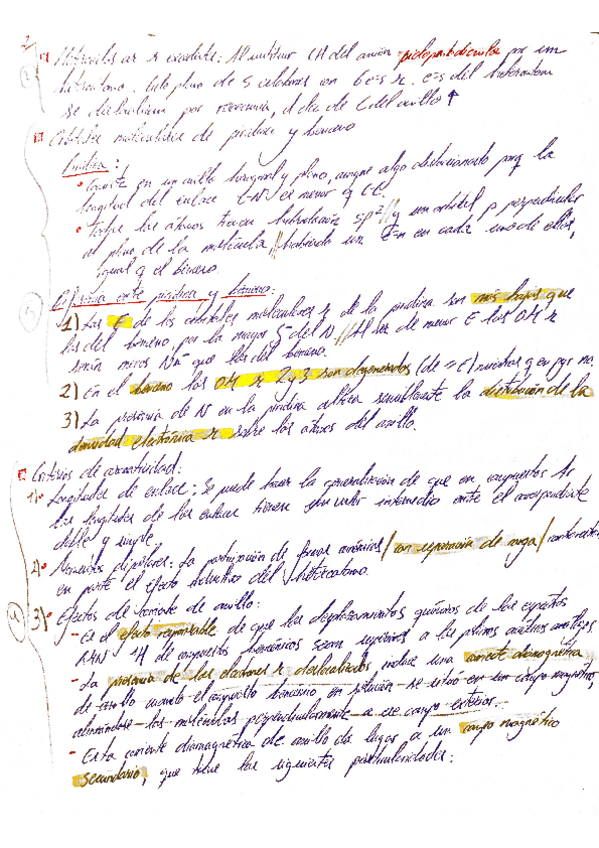 2
Heterociclos ar π excedente: Al sustituir CH del anión ciclopentadienilo por un
heteroátomo. Anillo plano de 5 eslabones con 6 e⁻s π. e⁻s del heteroátomo
se deslocalizan por resonancia, el de C del anillo ↑
Orbitales moleculares de piridina y benceno
Piridina:
• Consiste en un anillo hexagonal y plano, aunque algo distorsionado porq la
longitud del enlace C-N es menor q C-C.
• Todos los átomos tienen hibridación sp² // y un orbital p perpendicular
al plano de la molécula, // habiendo un e⁻ π en cada uno de ellos,
igual q el benceno.
Diferencia entre piridina y benceno:
1) Las E de los orbitales moleculares π de la piridina son más bajas que
las del benceno, por la mayor ξ del N // Al ser de menor E los OM π
serán menos que los del benceno.
2) En el benceno los OM π 2 y 3 son degenerados (de = E) mientras q en py no.
3) La presencia de N en la piridina altera sensiblemente la distribución de la
densidad electrónica π sobre los átomos del anillo.
Criterios de aromaticidad:
1) • Longitudes de enlace: Se puede hacer la generalización de que en compuestos
las longitudes de los enlaces tienen un valor intermedio entre el correspondiente
doble y simple.
2) • Momentos dipolares: La participación de formas canónicas / con separación de carga /
en parte el efecto inductivo del heteroátomo.
3) • Efectos de corriente de anillo:
- Es el efecto responsable de que los desplazamientos químicos de los espectros
RMN ¹H de compuestos bencénicos sean superiores a los
- La presencia de los electrones π deslocalizados induce una corriente diamagnética
de anillo cuando el compuesto bencénico en se sitúa en un campo magnético,
alineándose las moléculas perpendicularmente a ese campo exterior.
- Esta corriente diamagnética de anillo da lugar a un campo magnético
secundario, que tiene las siguientes particularidades: